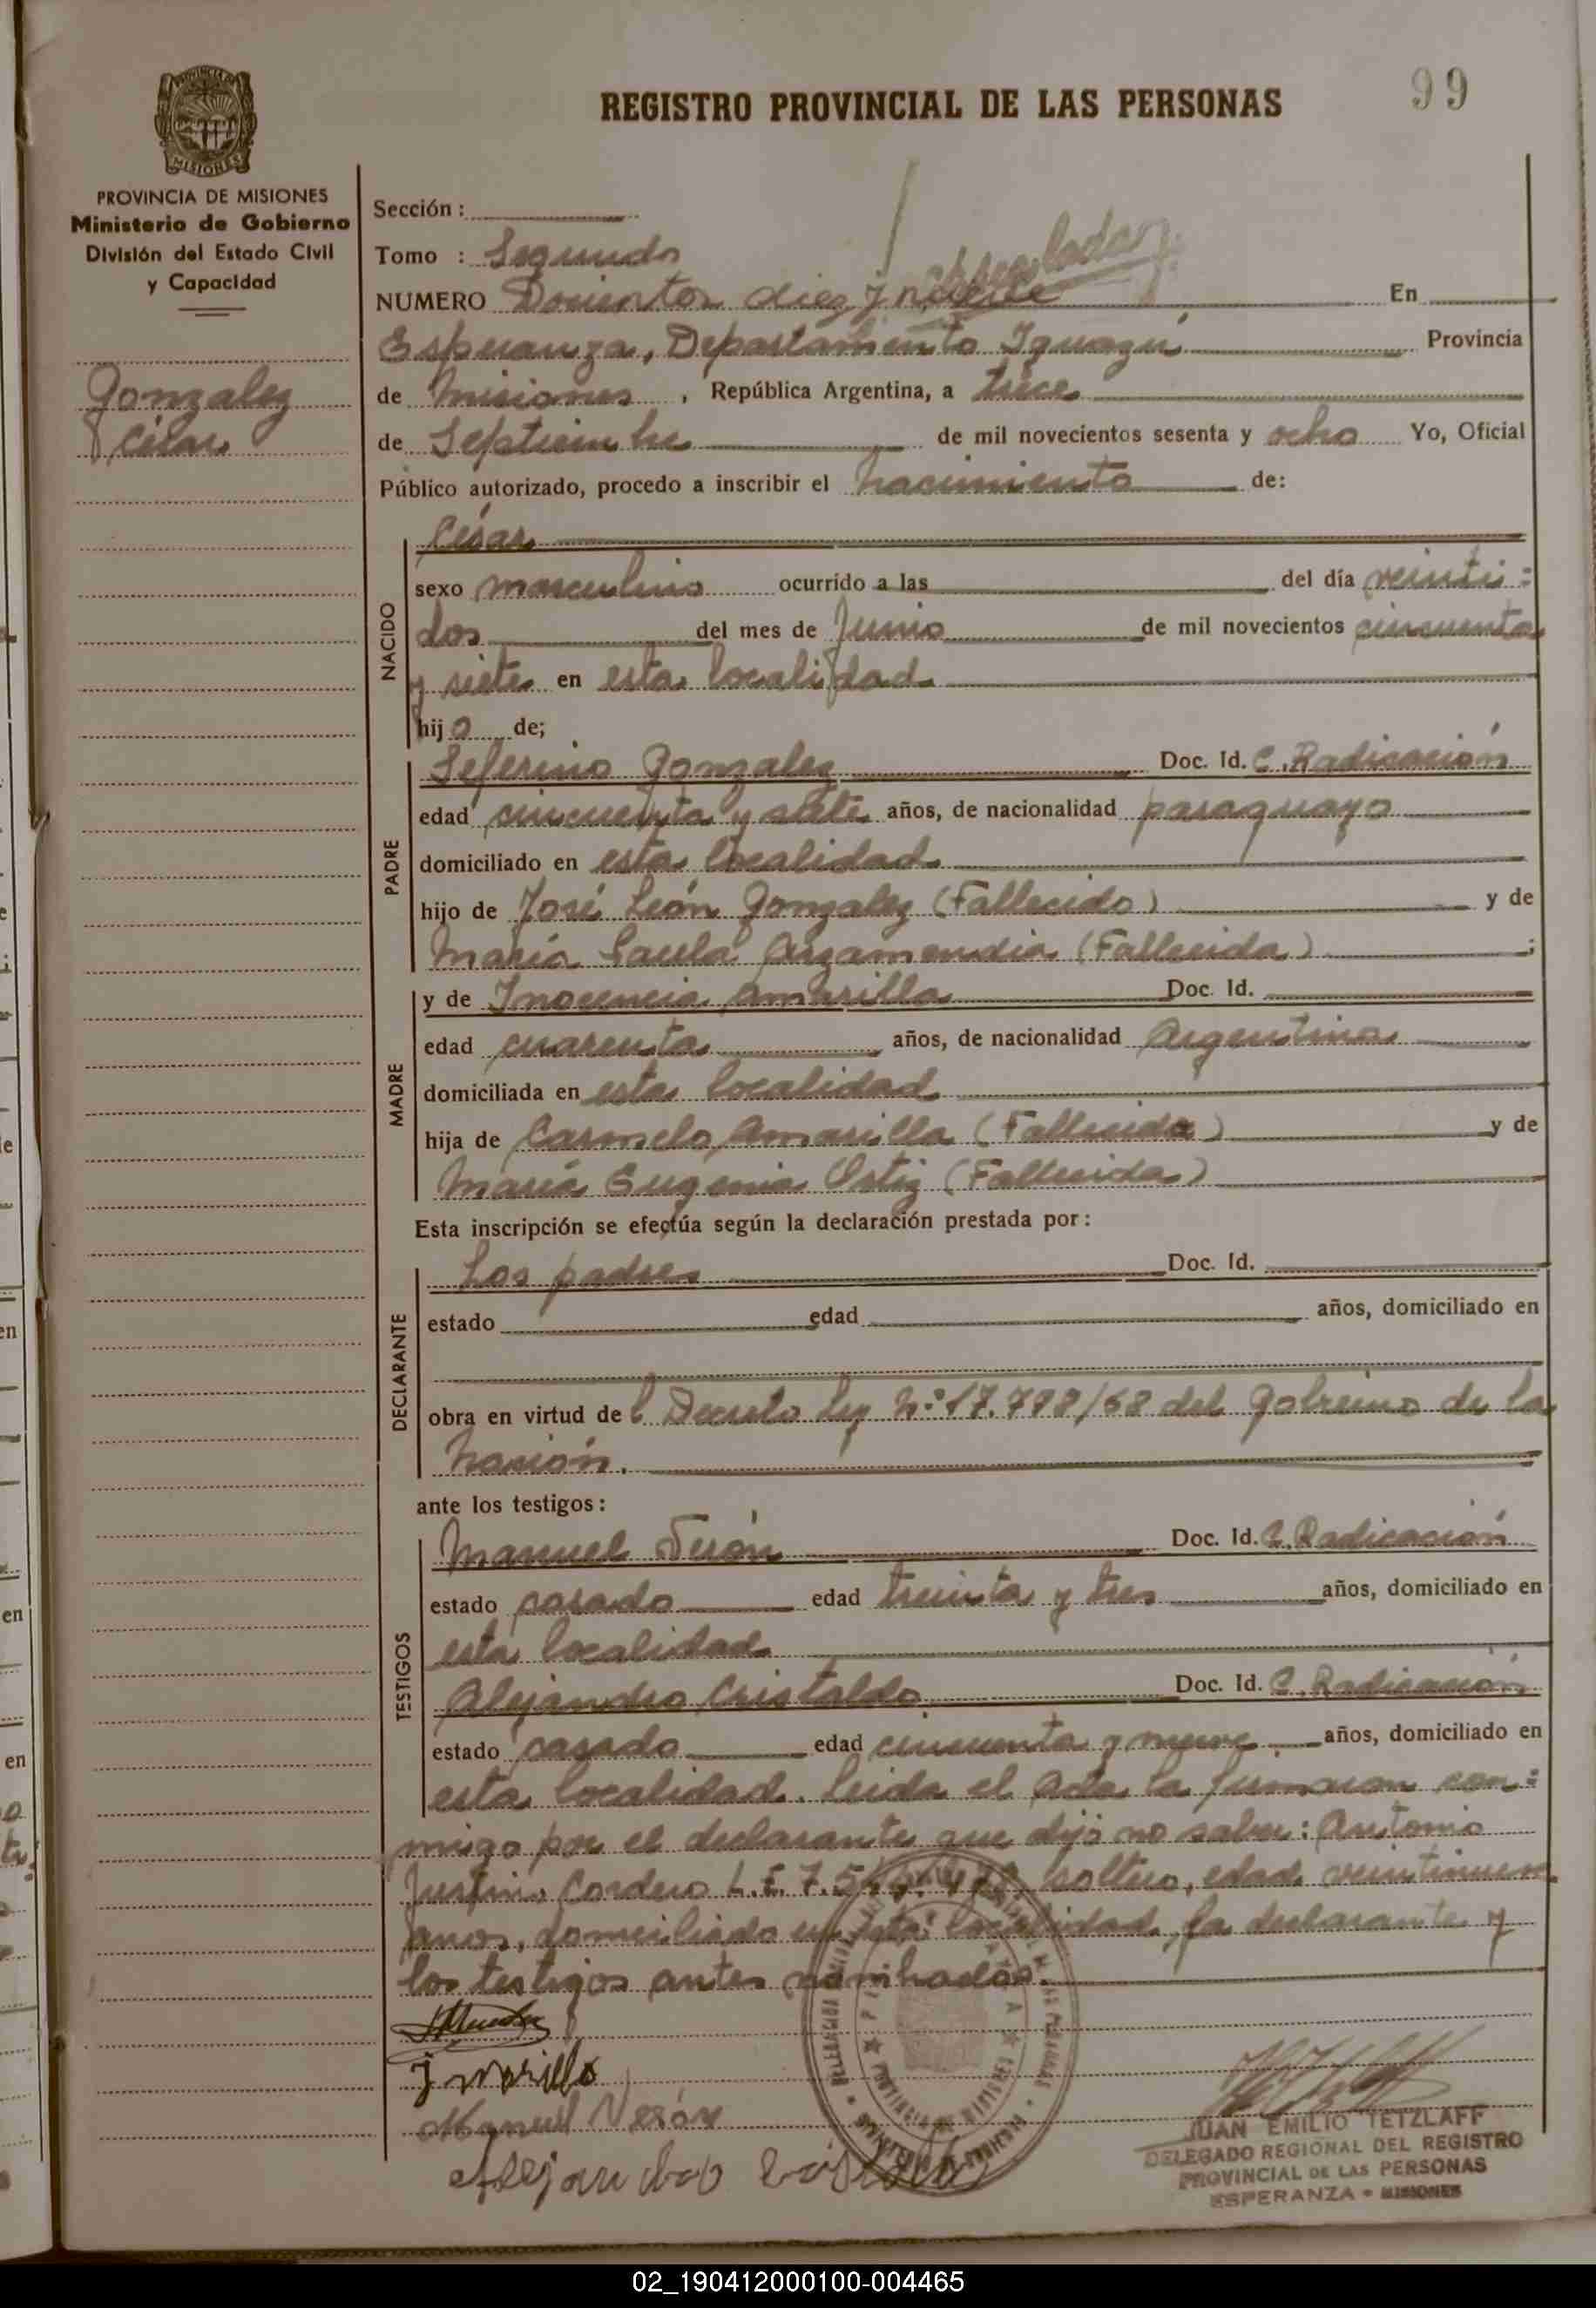 REGISTRO PROVINCIAL DE LAS PERSONAS
99
PROVINCIA DE MISIONES
Ministerio de Gobierno
División del Estado Civil
y Capacidad
Gonzalez
César
Sección :
Tomo : Segundo
NUMERO Docientos diez y nueve En
Esperanza, Departamento Iguazú Provincia
de Misiones, República Argentina, a trece
de Septiembre de mil novecientos sesenta y ocho Yo, Oficial
Público autorizado, procedo a inscribir el nacimiento de:
NACIDO
César
sexo masculino ocurrido a las del día veinti=
dos del mes de Junio de mil novecientos cincuenta
y siete en esta localidad
hijo de;
PADRE
Seferino Gonzalez Doc. Id. C. Radicación
edad cincuenta y siete años, de nacionalidad paraguayo
domiciliado en esta localidad
hijo de José León Gonzalez (Fallecido) y de
María Paula Arzamendia (Fallecida) ;
MADRE
y de Inocencia Amarilla Doc. Id.
edad cuarenta años, de nacionalidad Argentina
domiciliada en esta localidad
hija de Carmelo Amarilla (Fallecido) y de
María Eugenia Ortiz (Fallecida)
Esta inscripción se efectúa según la declaración prestada por:
DECLARANTE
Los padres Doc. Id.
estado edad años, domiciliado en
obra en virtud del Decreto ley N° 17.798/68 del Gobierno de la
Nación.
ante los testigos:
TESTIGOS
Manuel Verón Doc. Id. C. Radicación
estado casado edad treinta y tres años, domiciliado en
esta localidad
Alejandro Cristaldo Doc. Id. C. Radicación
estado casado edad cincuenta y nueve años, domiciliado en
esta localidad. Leida el Acta la firmaron con=
migo por el declarante que dijo no saber: Antonio
Justino Cordero L.E. 7. soltero, edad veintinueve
anos, domiciliado en esta localidad, la declarante y
los testigos antes nombrados.
Manuel Verón
JUAN EMILIO TETZLAFF
DELEGADO REGIONAL DEL REGISTRO
PROVINCIAL DE LAS PERSONAS
ESPERANZA - MISIONES
02_190412000100-004465